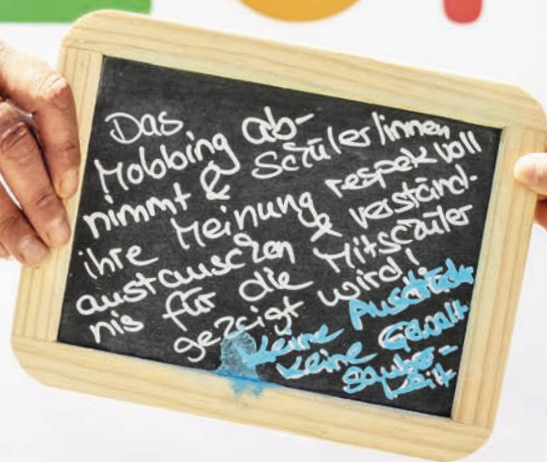 Das
Mobbing ab-
nimmt & Schüler/innen
ihre Meinung respektvoll
austauschen & verständ-
nis für die Mitschüler
gezeigt wird!
Keine Ausdrücke
keine Gewalt
Sauber-
keit